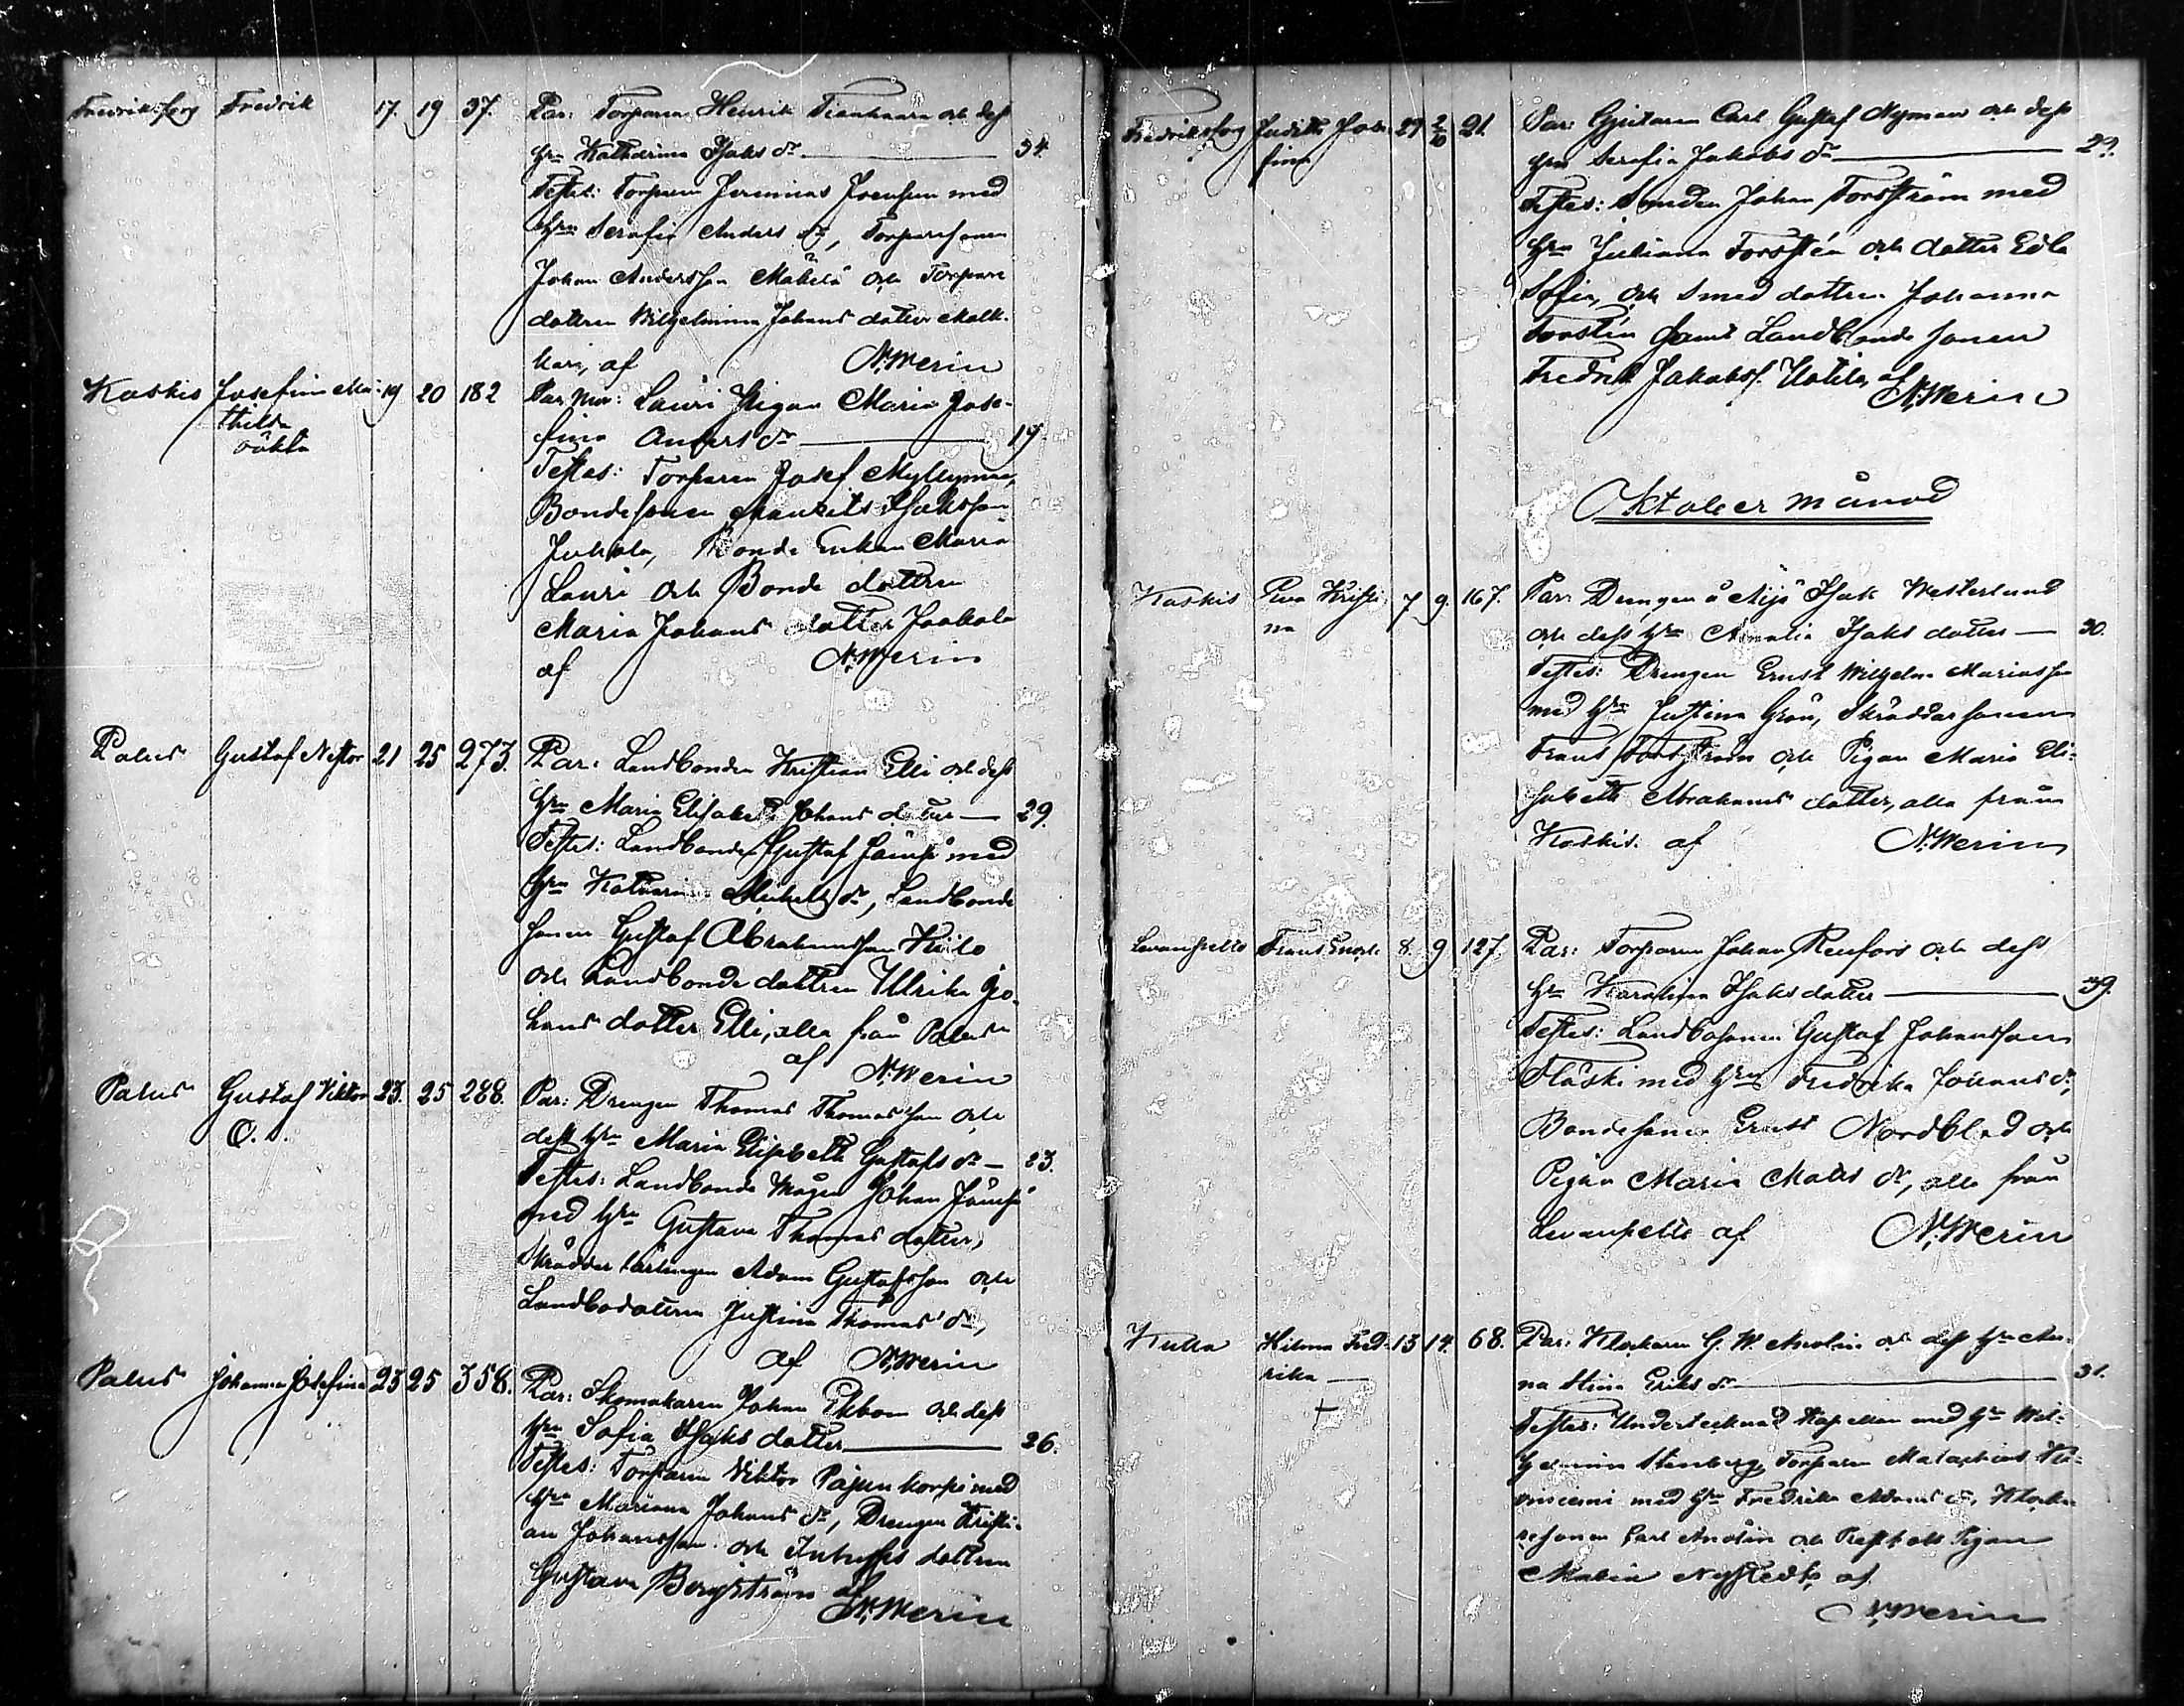 Fredriksforg Fredrik 17. 19 37. Par: Torparen Henrik Tienhaara och dess
hru Katharina Isaks dr 34.
Testes: Torparen Jeremias med
hru Serafia Anders dr, Torparesonen
Johan Andersson Mäkelä och Torpare
dottren Wilhelmina Johans dotter
af N. Merin
Kaskis Josefina Ma- 19 20 182 Par Mor: Lauri Pigan Maria Jose-
thilda fina Anders dr 19
oäkta
Testes: Torparen Josef Myllymaa,
Bondesonen Mauritz Isaksson
Juhola, Bonde Enkan Maria
Lauri och Bonde dottren
Maria Johans dotter Jaakola
af N. Merin
Palus Gustaf Nestor 21 25 273. Par: Landbonden Kristian Elli och dess
hru Maria Elisabet Johans dotter 29.
Testes: Landbonden Gustaf Jämsä med
hru Katharina Michels dr, Landbonde
sonen Gustaf Abrahamsson Kiilo
och Landbonde dottren Ulrika Jo-
hans dotter Elli, alla från Palus
af N. Merin
Palus Gustaf Viktor 23. 25 288. Par: Drengen Thomas Thomasson och
O. S. dess hru Maria Elisabeth Gustafs dr 23.
Testes: Landbonde Mågen Johan Jämsä
med hru Gustava Thomas dotter,
Skräddar lärlingen Adam Gustafsson och
Landbodottren Justina Thomas dr,
af N. Merin
Palus Johanna Josefina 23 25 358. Par: Skomakaren Johan Ekbom och dess
hru Sofia Isaks dotter 26.
Testes: Torparen Viktor Pajunkorpi med
hru Mariana Johans dr, Drengen Kristi-
an Johansson och Inhyses dottren
Gustava Bergström af N. Merin
Fredriksforg Judith Jose- 29 2/10 21. Par: Gjutaren Carl Gustaf Nyman och dess
fina hru Serafia Jakobs dr 29.
Testes: Smeden Johan Forsström med
hru Juliana Forstén och dotter Edla
Sofia, och Smed dottren Johanna
Forstén samt Landbonde sonen
Fredrik Jakobs. Uotila, af
N. Merin
Oktober månad
Kaskis Eva Kristi- 7 9. 167. Par: Drengen å Äijö Isak Westerlund
na och dess hru Amalia Isaks dotter 30.
Testes: Drengen Ernst Wilhelm Mariasson
med hru Justina Grön, Skräddarsonen
Frans Forsström och Pigan Maria Eli-
sabeth Abrahams dotter, alla från
Kaskis. af N. Merin
Levanpelto Frans Enok 8. 9 127. Par: Torparen Johan Renfors och dess
hru Karolina Isaks dotter 39.
Testes: Landbosonen Gustaf Johansson
Fläski med hru Fredrika Johans dr,
Bondesonen Ernst Nordblad och
Pigan Maria Mats dr, alla från
Levanpelto af N. Merin
Kulla Hilma Fred- 13 14. 68. Par: Klockaren G. W. och dess hru An-
rika na Stina Eriks dr 31.
+
Testes: Undertecknad Kapellan med hru Wil-
helmina Stenberg, Torparen Malakias
med hru Fredrika Adams dr, Klocka-
resonen Carl och Pigan
Maria Nystedt, af
N. Merin